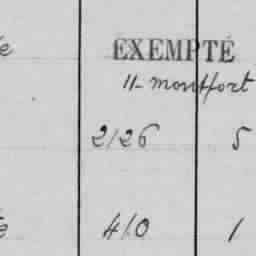 EXEMPTÉ
11- montfort
2126 5
410 1